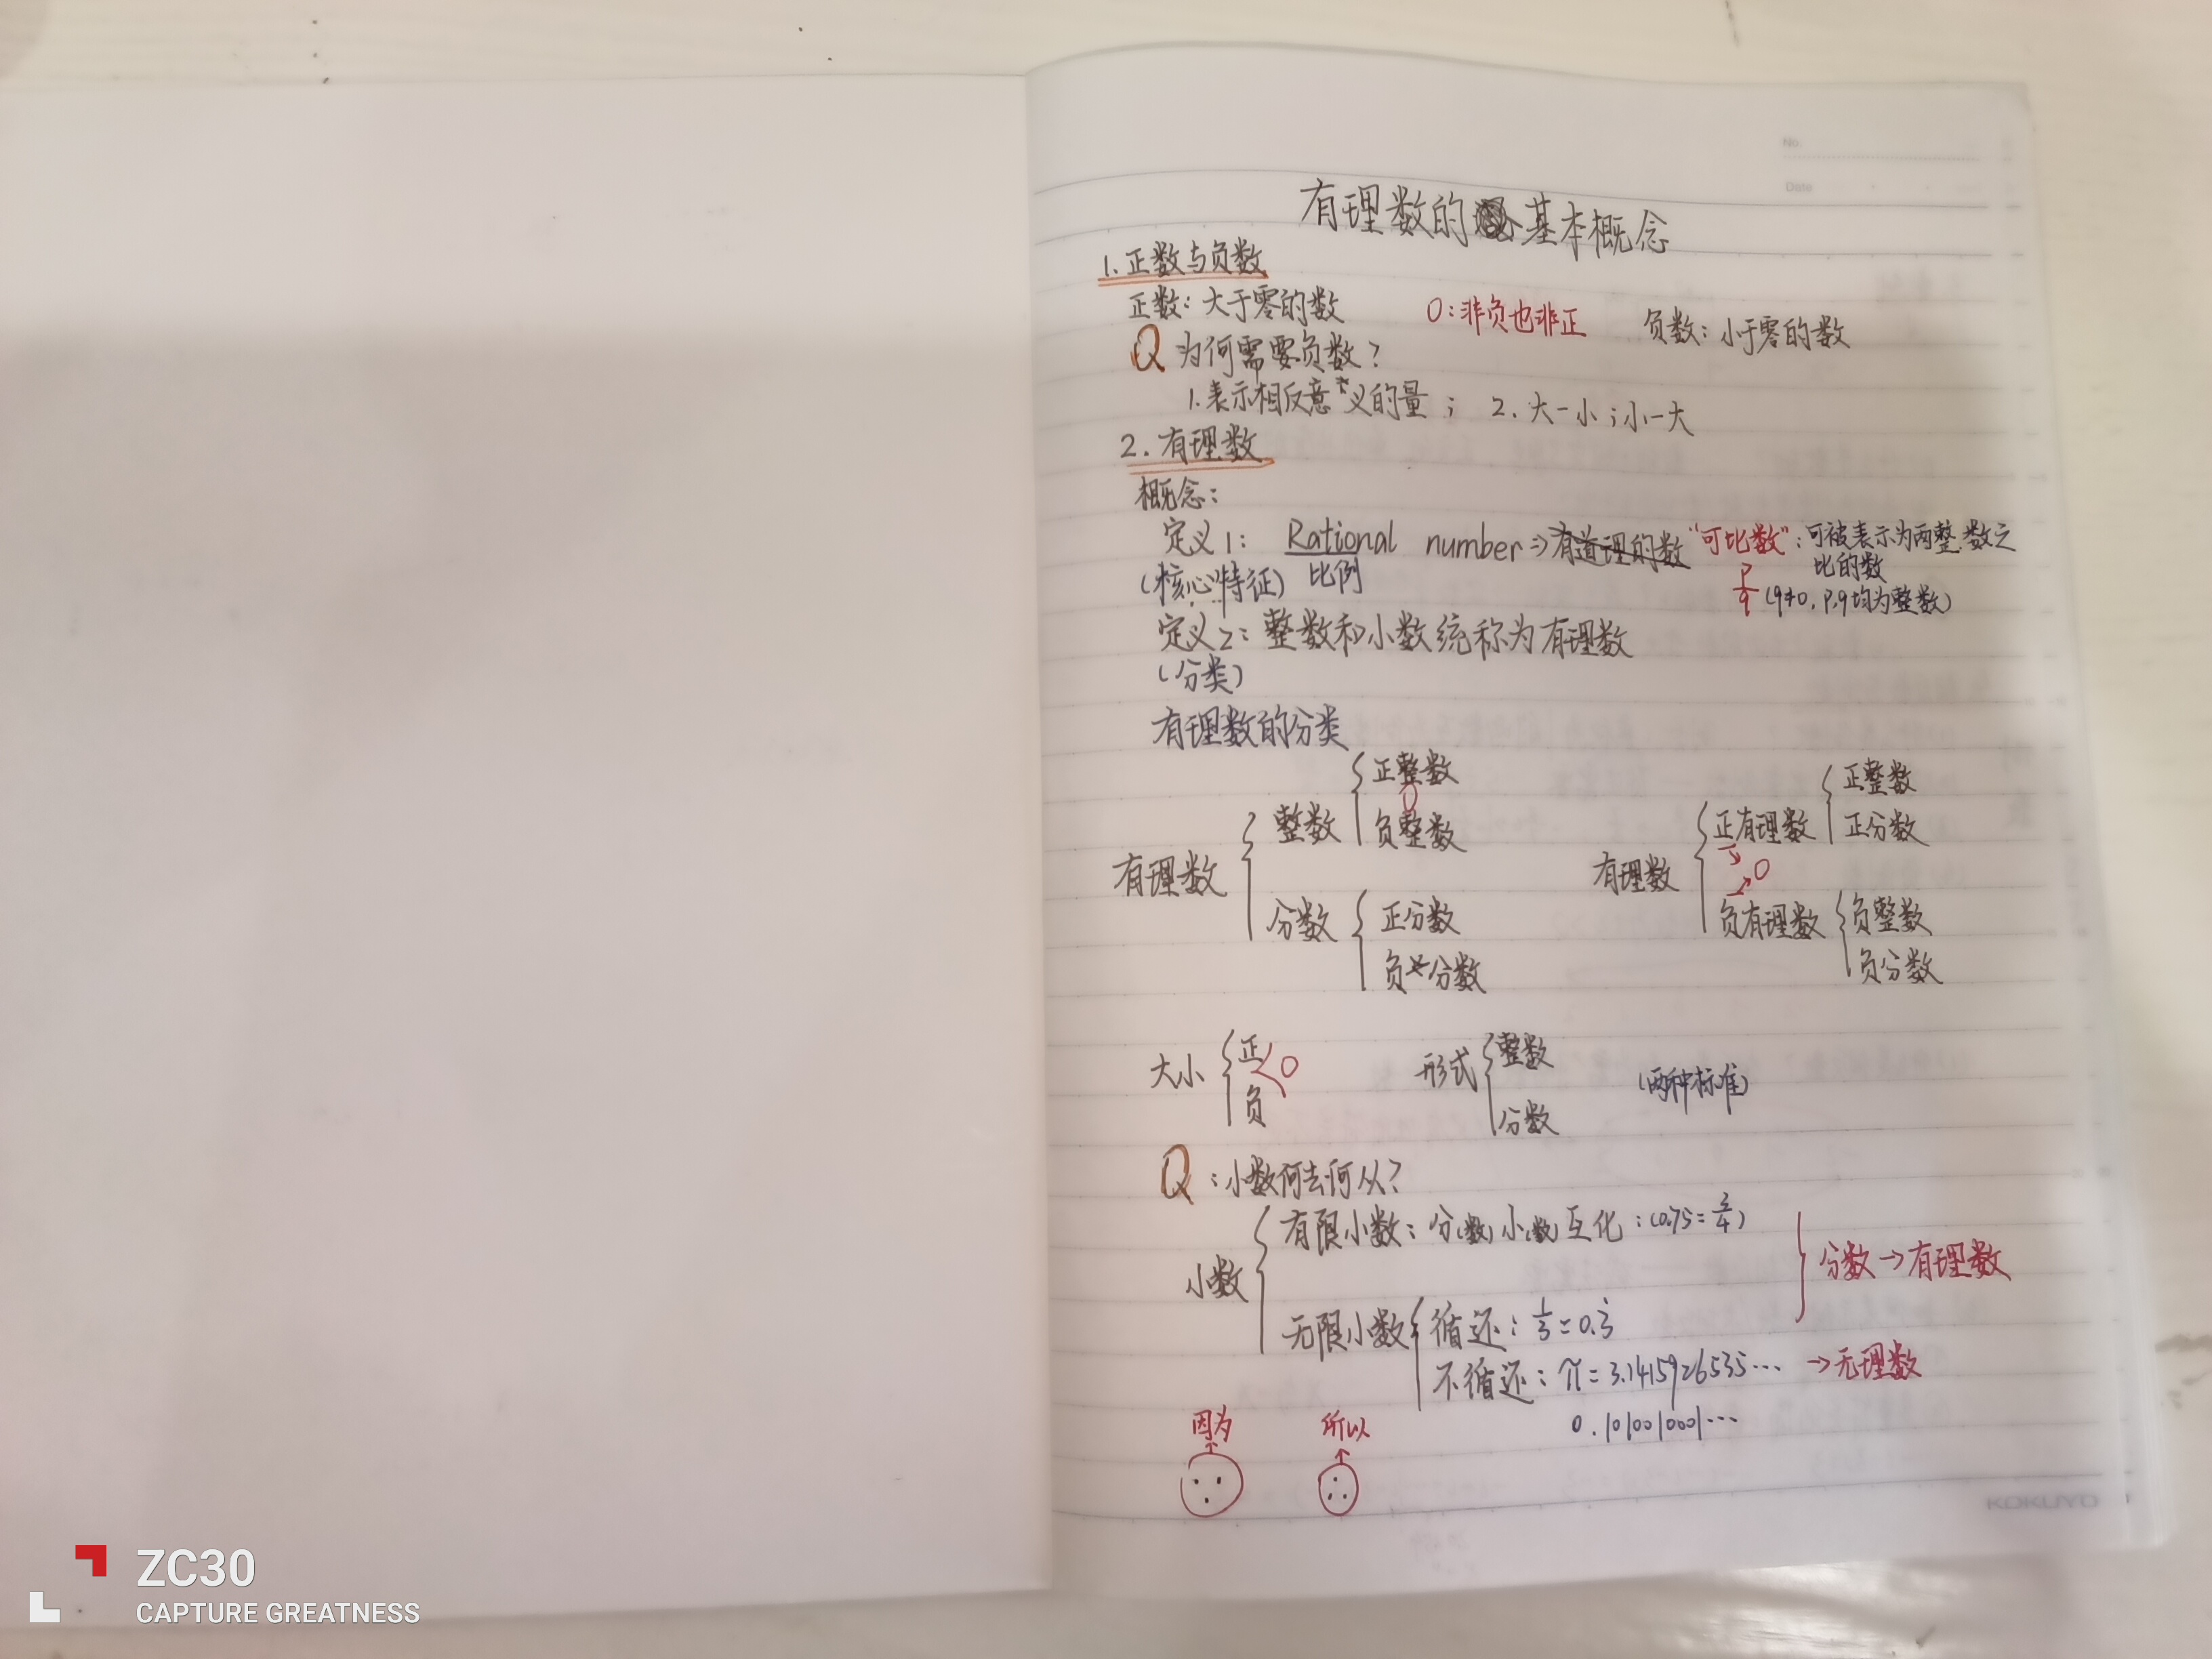 No.
Date
有理数的基本概念
1.正数与负数
正数：大于零的数 0：非负也非正 负数：小于零的数
Q 为何需要负数？
1.表示相反意义的量； 2.大－小；小－大
2.有理数
概念：
定义1： Rational number⇒有道理的数 “可比数”：可被表示为两整数之
比的数
(核心特征) 比例 p/q (q≠0，p.q均为整数)
定义2：整数和小数统称为有理数
(分类)
有理数的分类
有理数 { 整数 { 正整数
0
负整数
分数 { 正分数
负分数
有理数 { 正有理数 { 正整数
正分数
0
负有理数 { 负整数
负分数
大小 { 正
0
负
形式 { 整数
分数
(两种标准)
Q：小数何去何从？
小数 { 有限小数：分(数)小(数)互化：(0.75=3/4)
无限小数 { 循还：1/3=0.3̇
} 分数→有理数
不循还：π=3.1415926535… →无理数
0.1010010001…
因为 所以
KOKUYO
ZC30
CAPTURE GREATNESS